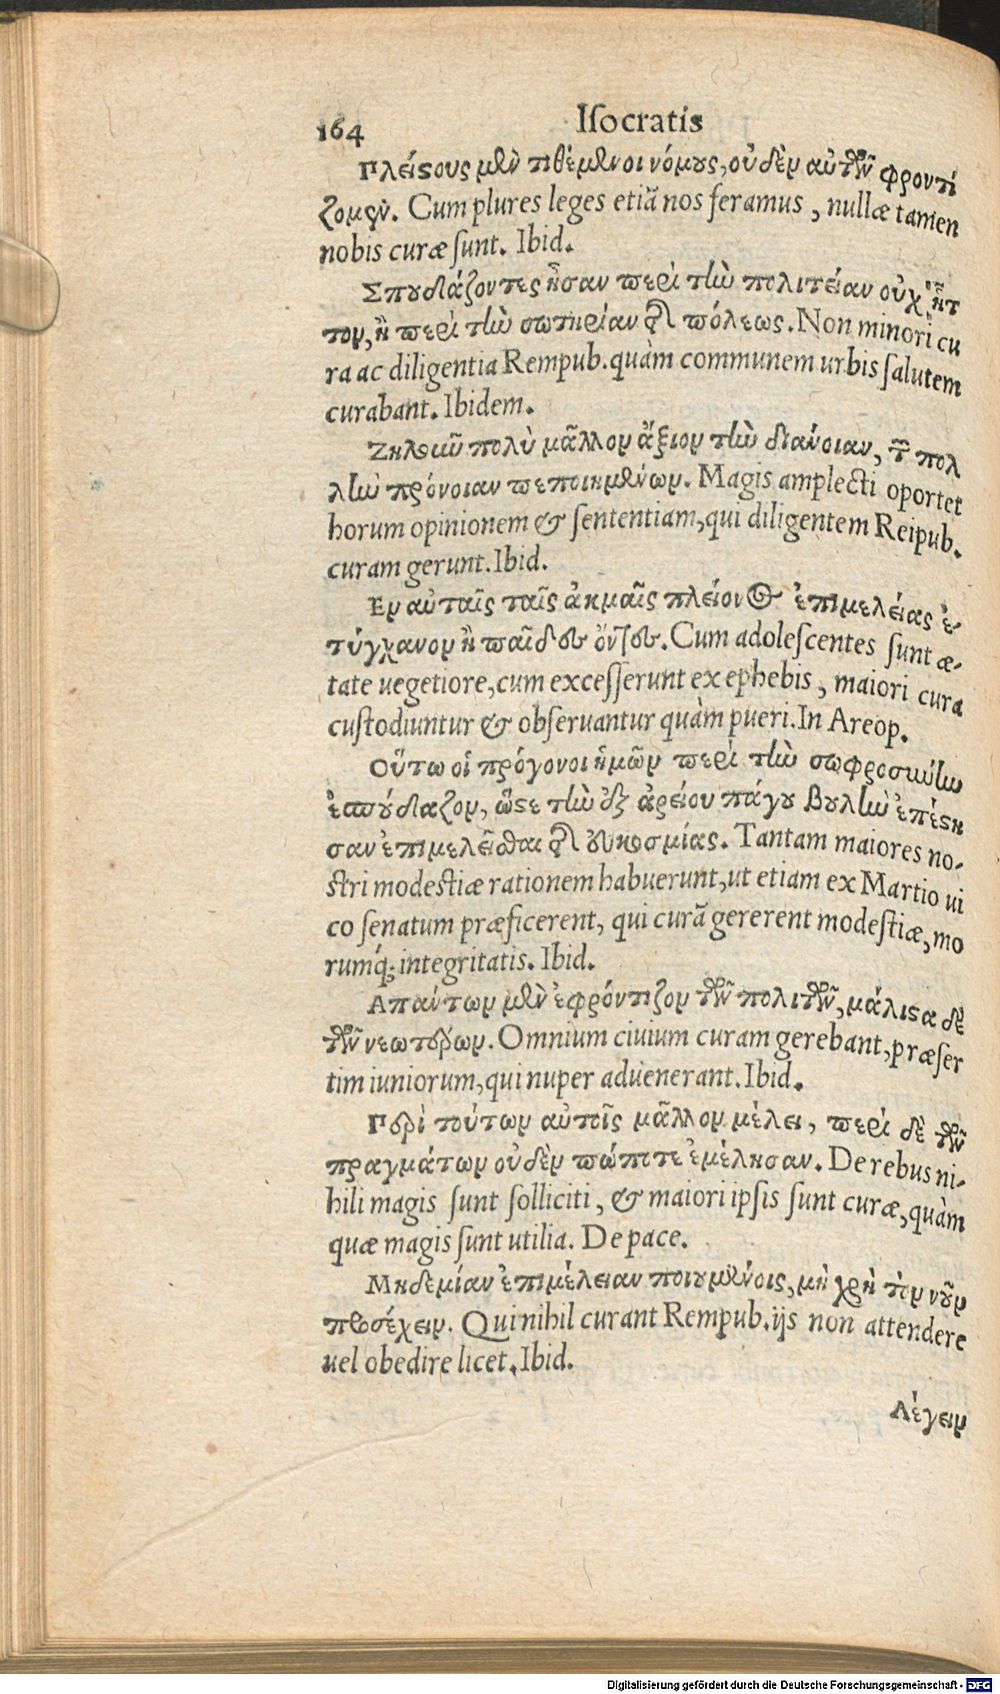 164 Iſocratis
Πλείϛους μὲν τιθέμενοι νόμους, οὐδὲν αὐτῶν φροντί
ζομεν. Cum plures leges etiã nos feramus, nullæ tamen
nobis curæ ſunt. Ibid.
Σπουδιάζοντες ἦσαν περὶ τὴν πολιτείαν οὐχ ἧτ
τον, ἢ περὶ τὴν σωτηρίαν τῆς πόλεως. Non minori cu
ra ac diligentia Rempub. quàm communem urbis ſalutem
curabant. Ibidem.
Ζηλοῦν πολὺ μᾶλλον ἄξιον τὴν διάνοιαν, τ πολ
λὴν πρόνοιαν πεποιημένων. Magis amplecti oportet
horum opinionem & ſententiam, qui diligentem Reipub.
curam gerunt. Ibid.
Εν αὐταῖς ταῖς ἀκμαῖς πλείονος ἐπιμελείας ἐ-
τύγχανον ἢ παῖδες ὄντες. Cum adoleſcentes ſunt æ-
tate uegetiore, cum exceſſerunt ex ephebis, maiori cura
cuſtodiuntur & obſeruantur quàm pueri. In Areop.
Οὕτω οἱ πρόγονοι ἡμῶν περὶ τὴν σωφροσύνην
ἐσπούδιαζον, ὥϛε τὴν ἐξ ἀρείου πάγου βουλὴν ἐπέϛη
σαν ἐπιμελεῖσθαι τῆς εὐκοσμίας. Tantam maiores no-
ſtri modeſtiæ rationem habuerunt, ut etiam ex Martio ui
co ſenatum præficerent, qui curã gererent modeſtiæ, mo
rumq́; integritatis. Ibid.
Απάντων μὲν ἐφρόντιζον τῶν πολιτῶν, μάλιϛα δὲ
τῶν νεωτέρων. Omnium ciuium curam gerebant, præſer
tim iuniorum, qui nuper aduenerant. Ibid.
Περὶ τούτων αὐτοῖς μᾶλλον μέλει, περὶ δὲ τῶν
πραγμάτων οὐδὲν πώποτε ἐμέλησαν. De rebus ni-
hili magis ſunt ſolliciti, & maiori ipſis ſunt curæ, quàm
quæ magis ſunt utilia. De pace.
Μηδεμίαν ἐπιμέλειαν ποιουμένοις, μὴ χρὴ τὸν νοῦν
προσέχειν. Qui nihil curant Rempub. ijs non attendere
uel obedire licet. Ibid.
Λέγειν
Digitalisierung gefördert durch die Deutsche Forschungsgemeinschaft - DFG